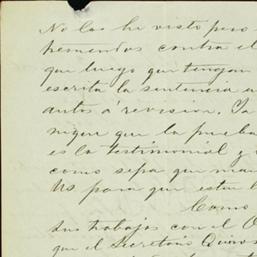 No las he visto pero
hemendos contra el
que luego que tengan
escrita la sentencia
autos á revision. Ya
nique que la prueba
es la testimonial y
como sepa que man
Us para que esten l
Como
sus trabajos con el
que el Secretario Quiros